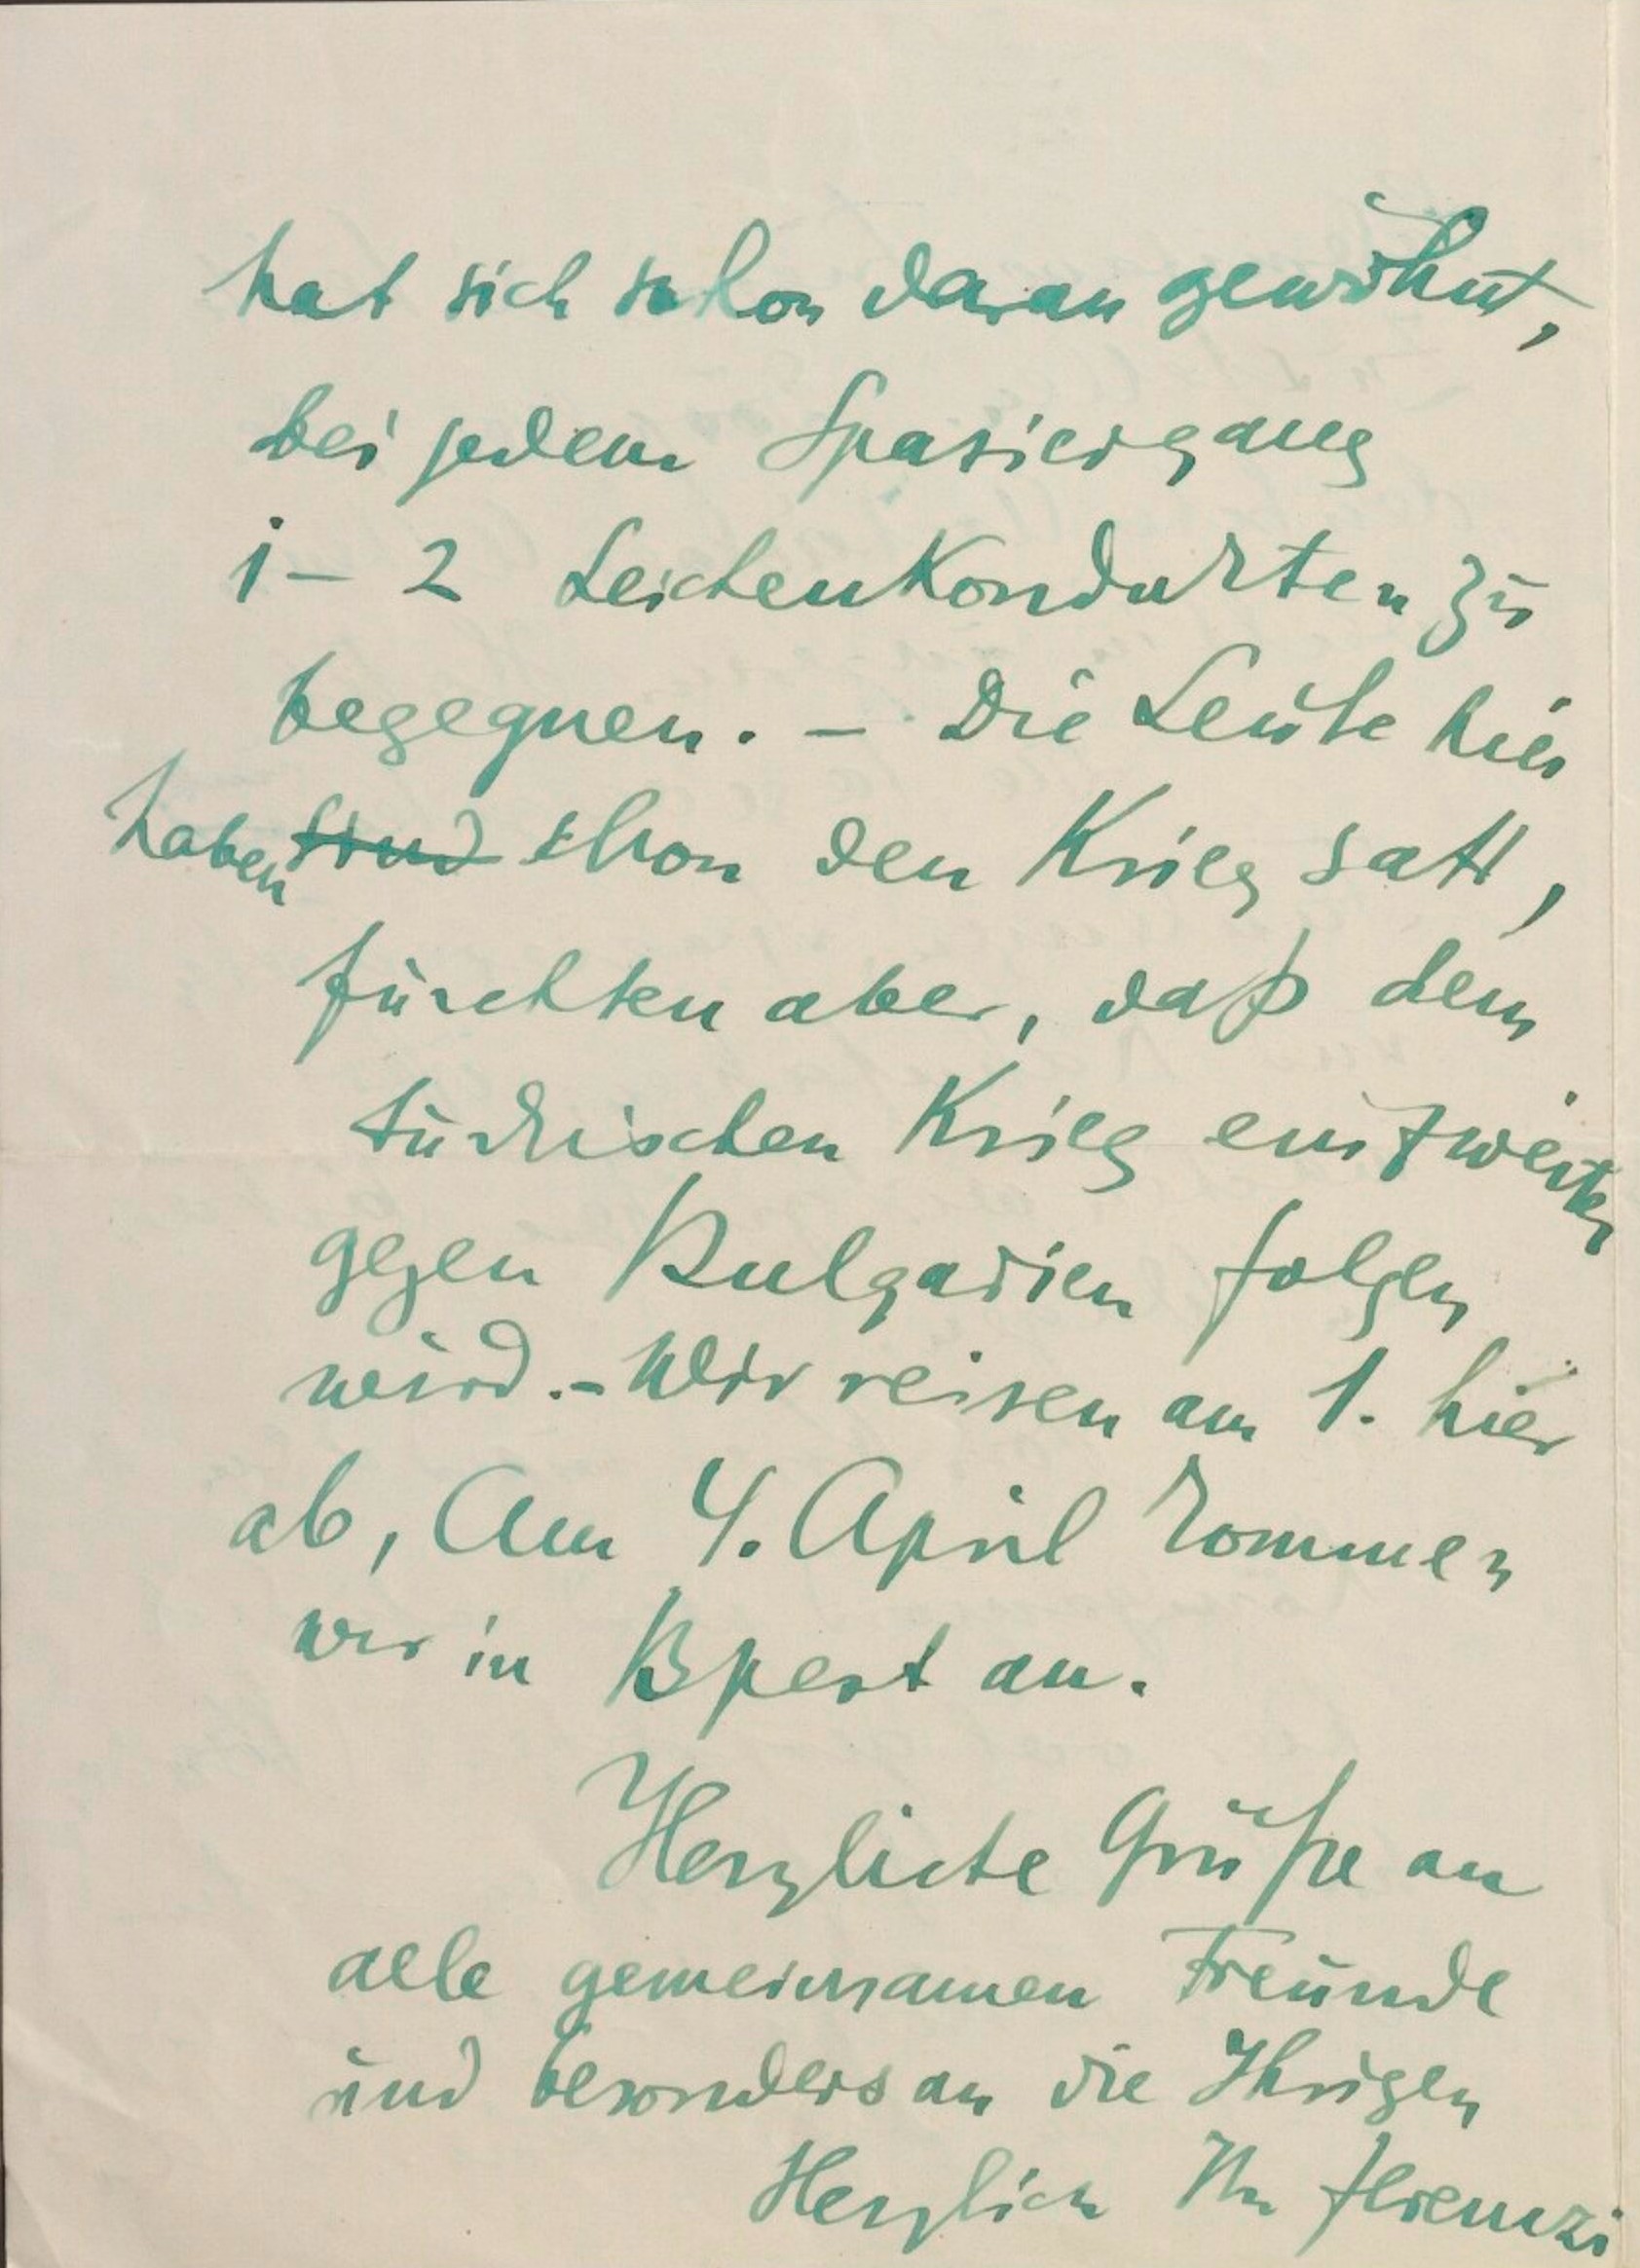 hat sich schon daran gewöhnt,
bei jedem Spasiergang
1 – 2 Leichenkondukten zu
begegnen. – Die Leute hier
haben sind schon den Krieg satt,
fürchten aber, daß dem
türkischen Krieg ein zweiter
gegen Bulgarien folgen
wird. – Wir reisen am 1. hier
ab, Am 4. April kommen
wir in Bpest an.
Herzliche Grüße an
alle gemeinsamen Freunde
und besonders an die Ihrigen
Herzlich Ihr Ferenczi